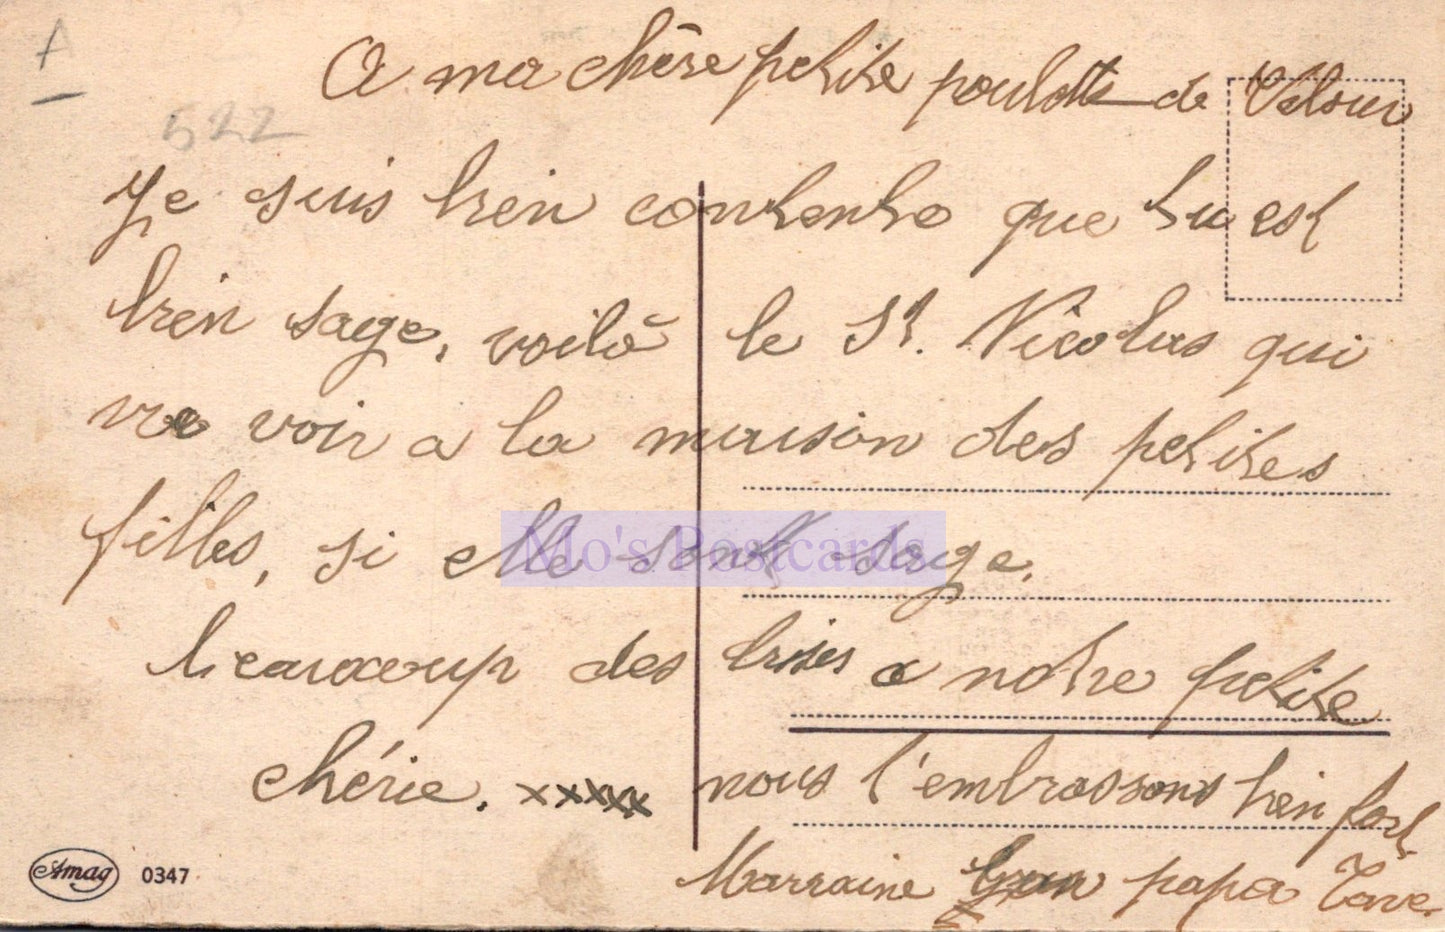 A
522
A ma chère petite poulette de Velour
Je suis bien contente que tu est
bien sage, voilà le St. Nicolas qui
va voir a la maison des petites
filles, si elle sont sage.
beaucoup des bises a notre petite
chérie. xxxxx nous l'embrassons bien fort
Marraine papa Tave.
Amag 0347
Mo's Postcards